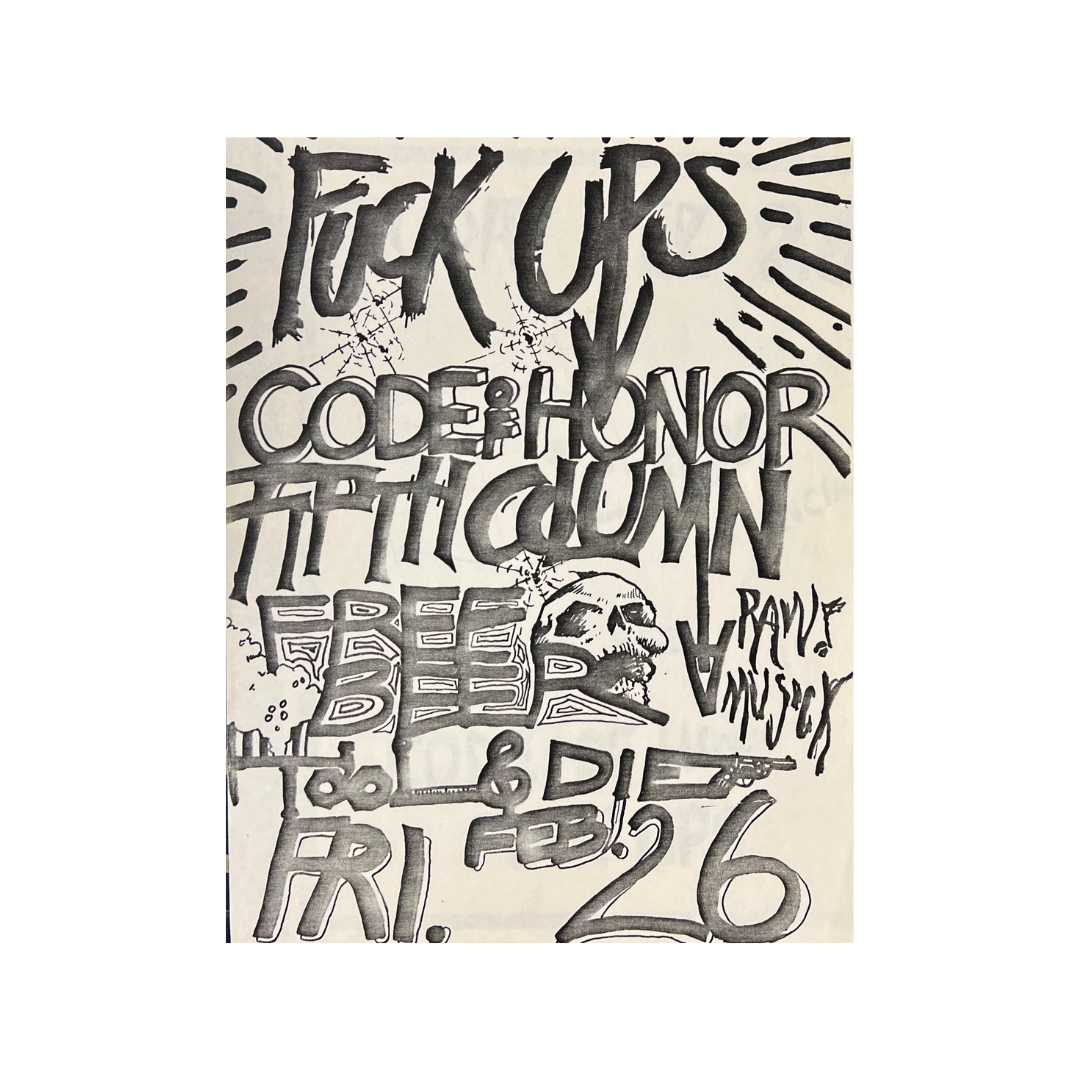 FUCK UPS
CODE OF HONOR
FIFTH COLUMN
FREE
BEER
RAW!
MUSICK
TOOL & DIE
FRI. FEB. 26